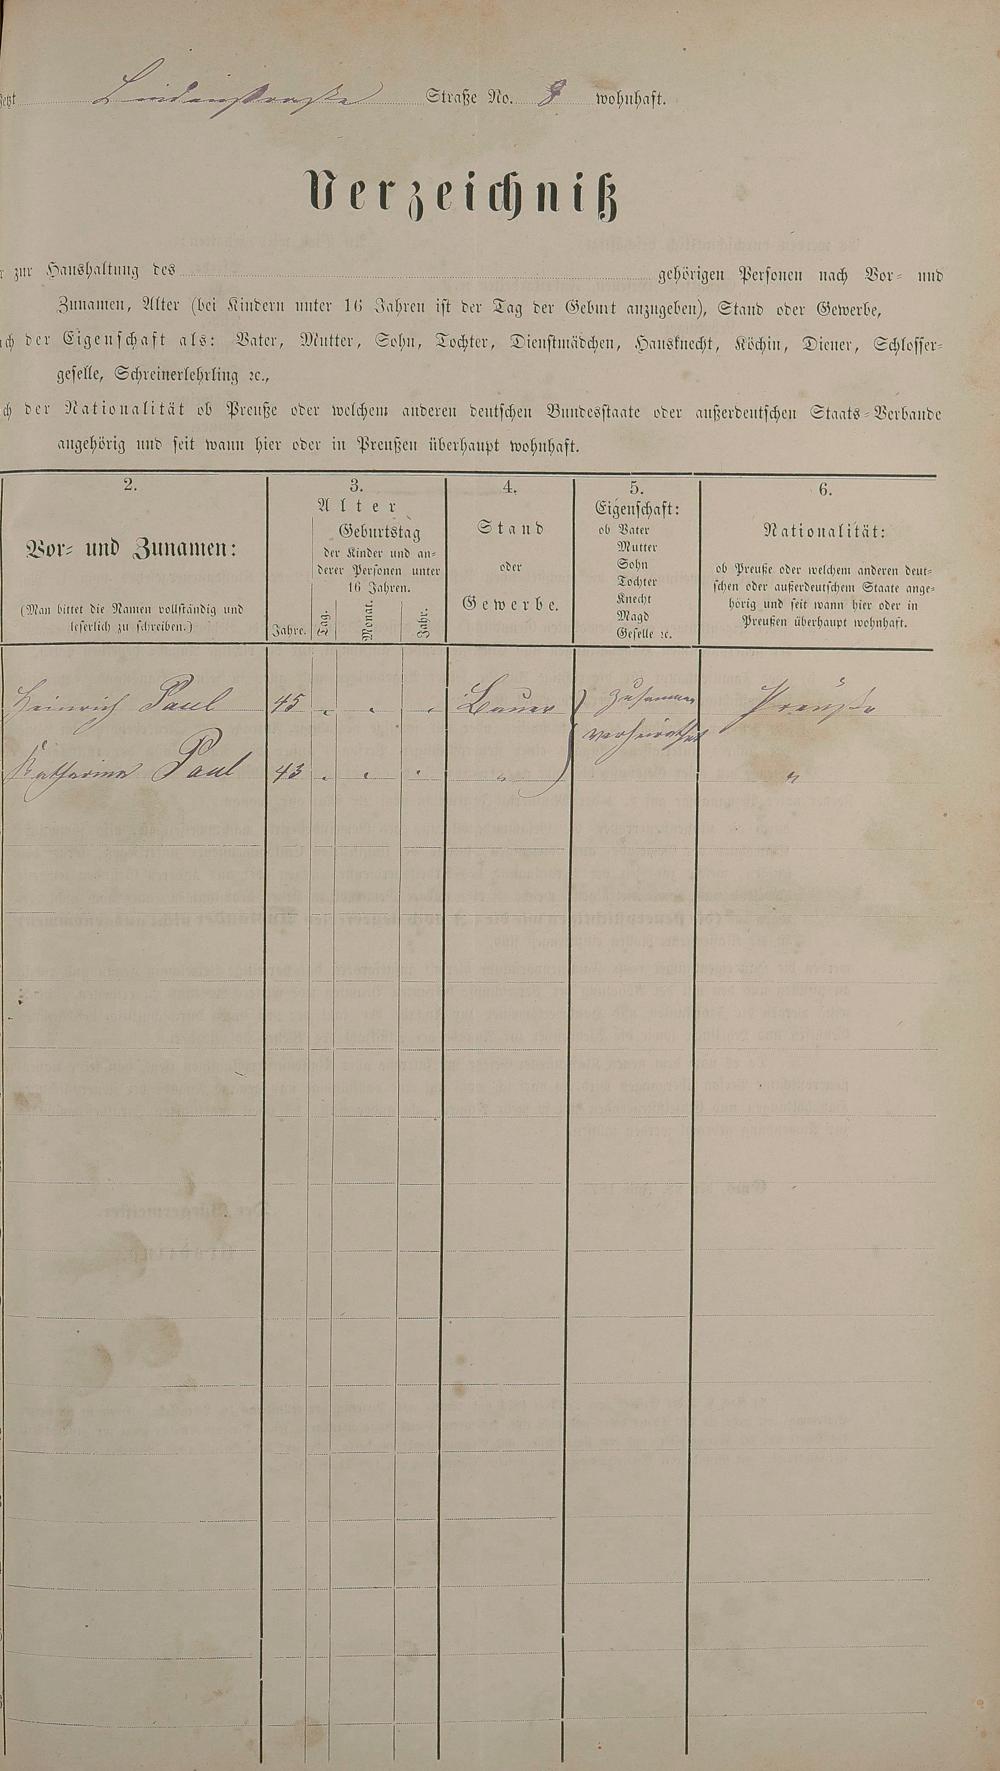 jetzt Lindenstraße Straße No. 8 wohnhaft.
Verzeichniß
zur Haushaltung des gehörigen Personen nach Vor= und
Zunamen, Alter (bei Kindern unter 16 Jahren ist der Tag der Geburt anzugeben), Stand oder Gewerbe,
der Eigenschaft als: Vater, Mutter, Sohn, Tochter, Dienstmädchen, Hausknecht, Köchin, Diener, Schlosser=
geselle, Schreinerlehrling ꝛc.,
der Nationalität ob Preuße oder welchem anderen deutschen Bundesstaate oder außerdeutschen Staats=Verbande
angehörig und seit wann hier oder in Preußen überhaupt wohnhaft.
2.
Vor= und Zunamen:
(Man bittet die Namen vollständig und
leserlich zu schreiben.)
3.
Alter
Jahre.
Geburtstag
der Kinder und an=
derer Personen unter
16 Jahren.
Tag.
Monat.
Jahr.
4.
Stand
oder
Gewerbe.
5.
Eigenschaft:
ob Vater
Mutter
Sohn
Tochter
Knecht
Magd
Geselle ꝛc.
6.
Nationalität:
ob Preuße oder welchem anderen deut=
schen oder außerdeutschem Staate ange=
hörig und seit wann hier oder in
Preußen überhaupt wohnhaft.
Heinrich Paul 45 " " " Bauer } zusammen Preuße
verheirathet
Katharina Paul 43 " " " " "